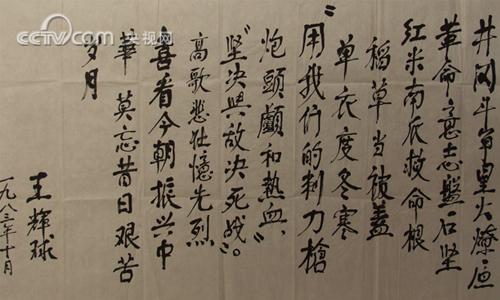 CCTV.com 央视网
井冈斗争星火燎原
革命意志盤石坚
红米南瓜救命根
稻草当被盖
单衣度冬寒
"用我们的刺刀槍
炮頭顱和热血、
坚决與敌决死战"。
高歌悲壮憶先烈
喜看今朝振兴中
華 莫忘昔日艰苦
岁月
王輝球
一九八三年十月